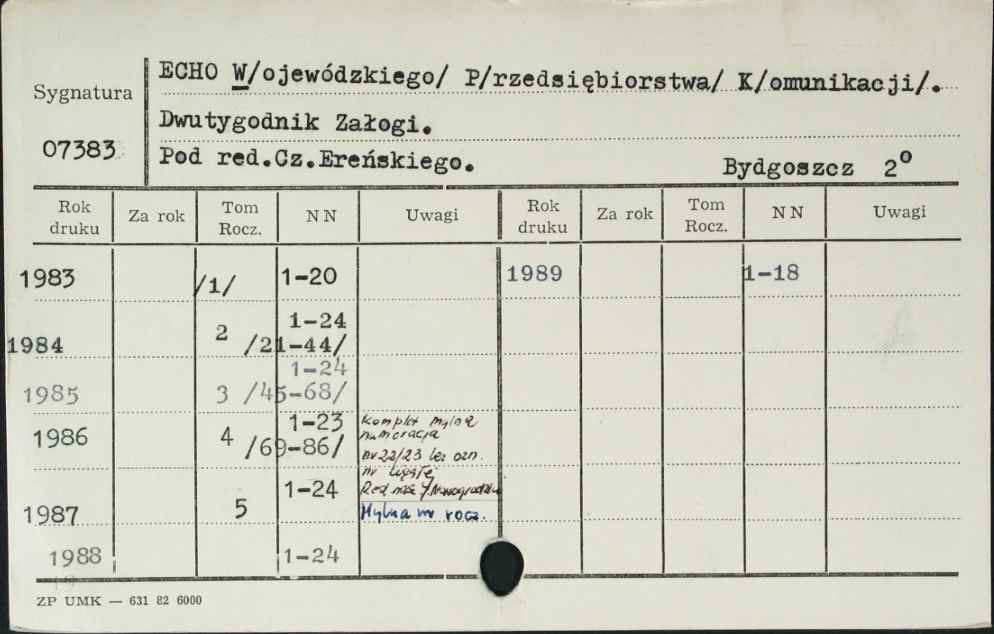 ECHO W/ojewódzkiego/ P/rzedsiębiorstwa/ K/omunikacji/.
Sygnatura
Dwutygodnik Załogi.
07383
Pod red.Cz.Ereńskiego. Bydgoszcz 2°
Rok druku Za rok Tom Rocz. NN Uwagi Rok druku Za rok Tom Rocz. NN Uwagi
1983 /1/ 1-20 1989 1-18
1984 2 1-24
/21-44/
1985 3 1-24
/45-68/
1986 4 1-23 komplet mylna
/69-86/ numeracja
nr 22/23 bez ozn.
nr ciągłej
1987 5 1-24 Red. nacz.
Mylna nr rocz.
1988 1-24
ZP UMK — 631 82 6000